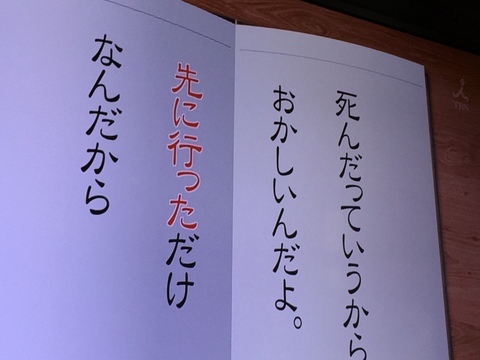 死んだっていうから
おかしいんだよ。
先に行っただけ
なんだから
TBS